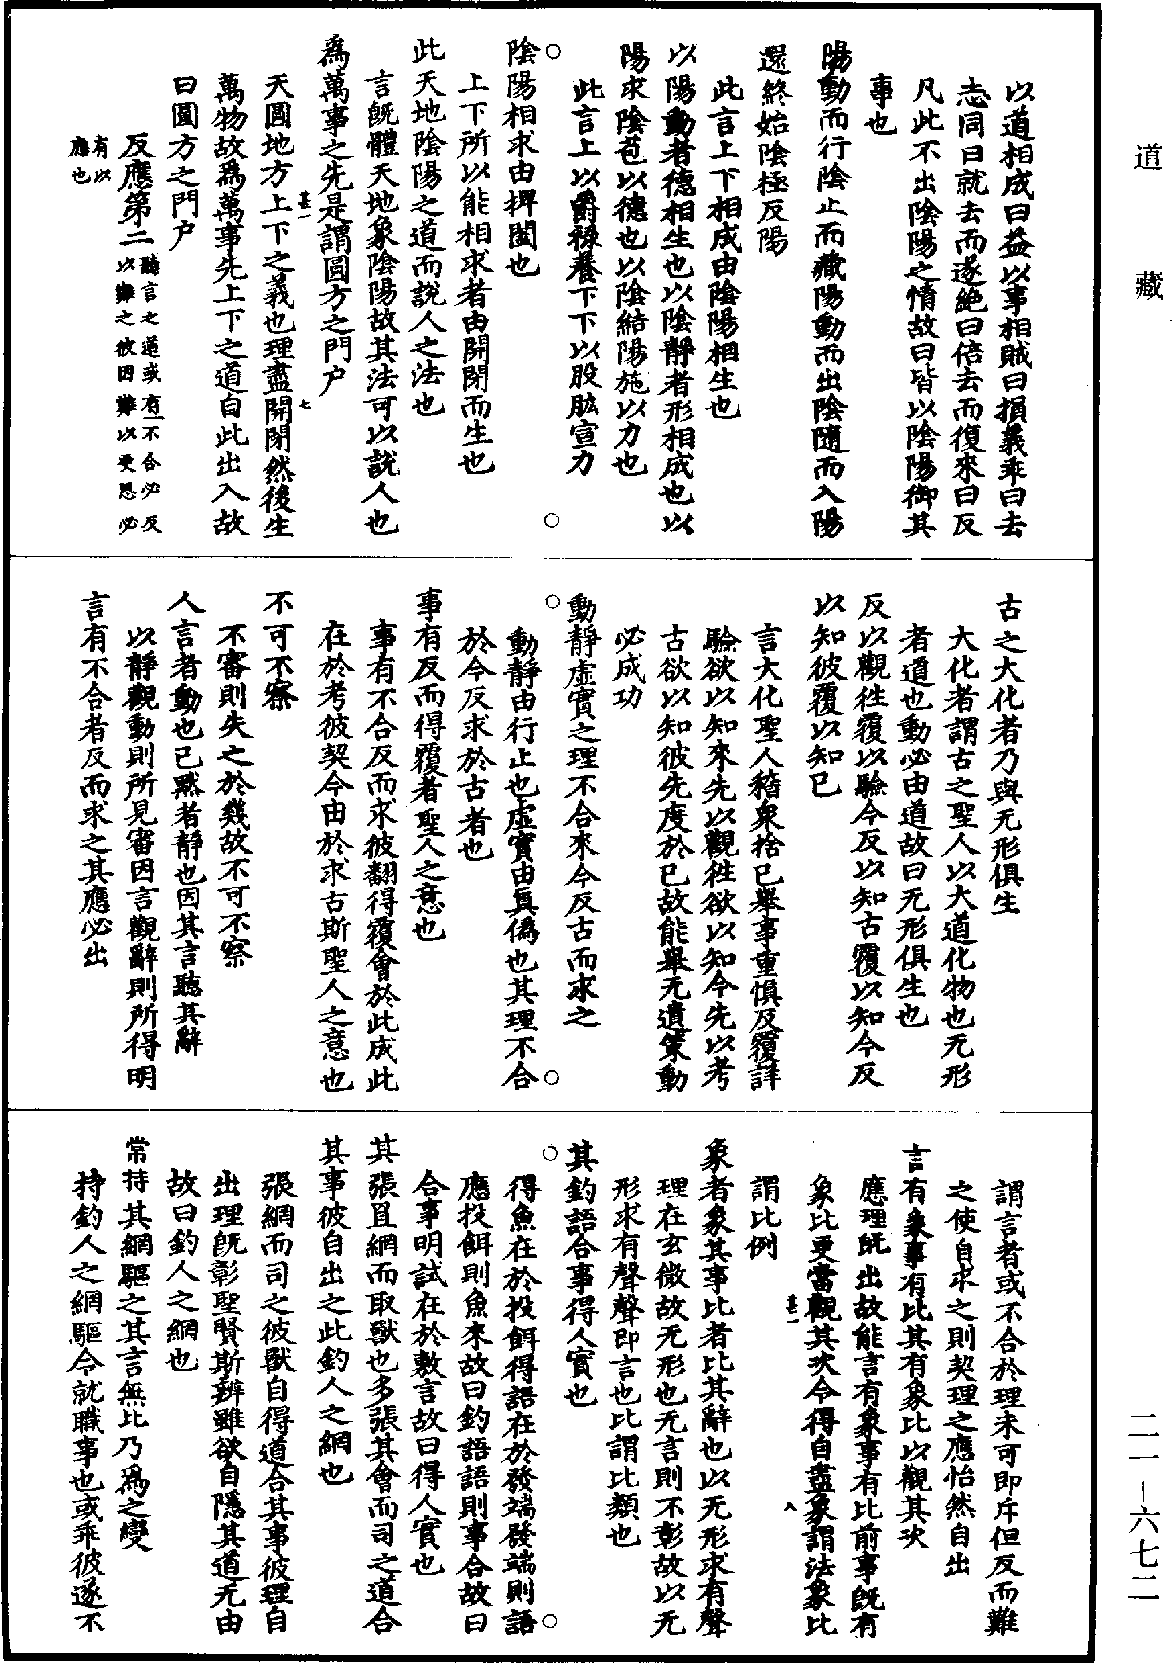 道藏
以道相成曰益以事相賊曰損義乖曰去
志同曰就去而遂絶曰倍去而復來曰反
凡此不出陰陽之情故曰皆以陰陽御其
事也
陽動而行陰止而藏陽動而出陰隨而入陽
還終始陰極反陽
此言上下相成由陰陽相生也
以陽動者德相生也以陰靜者形相成也以
陽求陰苞以德也以陰結陽施以力也
此言上以爵祿養下下以股肱宣力
○ ○
陰陽相求由捭闔也
上下所以能相求者由開閉而生也
此天地陰陽之道而說人之法也
言旣體天地象陰陽故其法可以說人也
爲萬事之先是謂圓方之門户
甚一 七
天圓地方上下之義也理盡開閉然後生
萬物故爲萬事先上下之道自此出入故
曰圓方之門户
反應第二聽言之道或有不合必反以難之彼因難以更思必
有以應也
古之大化者乃與无形俱生
大化者謂古之聖人以大道化物也无形
者道也動必由道故曰无形俱生也
反以觀往覆以驗今反以知古覆以知今反
以知彼覆以知已
言大化聖人稽衆捨已舉事重慎反覆詳
驗欲以知來先以觀往欲以知今先以考
古欲以知彼先度於已故能舉无遺策動
必成功
動靜虛實之理不合來今反古而求之
○ ○
動靜由行止也虛實由真僞也其理不合
於今反求於古者也
事有反而得覆者聖人之意也
事有不合反而求彼翻得覆會於此成此
在於考彼契今由於求古斯聖人之意也
不可不察
不審則失之於幾故不可不察
人言者動也已黙者靜也因其言聽其辭
以靜觀動則所見審因言觀辭則所得明
言有不合者反而求之其應必出
謂言者或不合於理未可即斥但反而難
之使自求之則契理之應怡然自出
言有象事有比其有象比以觀其次
應理旣出故能言有象事有比前事旣有
象比更當觀其次令得自盡象謂法象比
謂比例
甚一 八
象者象其事比者比其辭也以无形求有聲
理在玄微故无形也无言則不彰故以无
形求有聲聲即言也比謂比類也
其釣語合事得人實也
○ ○
得魚在於投餌得語在於發端發端則語
應投餌則魚來故曰釣語語則事合故曰
合事明試在於敷言故曰得人實也
其張且網而取獸也多張其會而司之道合
其事彼自出之此釣人之網也
張網而司之彼獸自得道合其事彼理自
出理旣彰聖賢斯辨雖欲自隱其道无由
故曰釣人之網也
常持其網驅之其言無比乃爲之變
持釣人之網驅令就職事也或乖彼遂不
二一-六七二